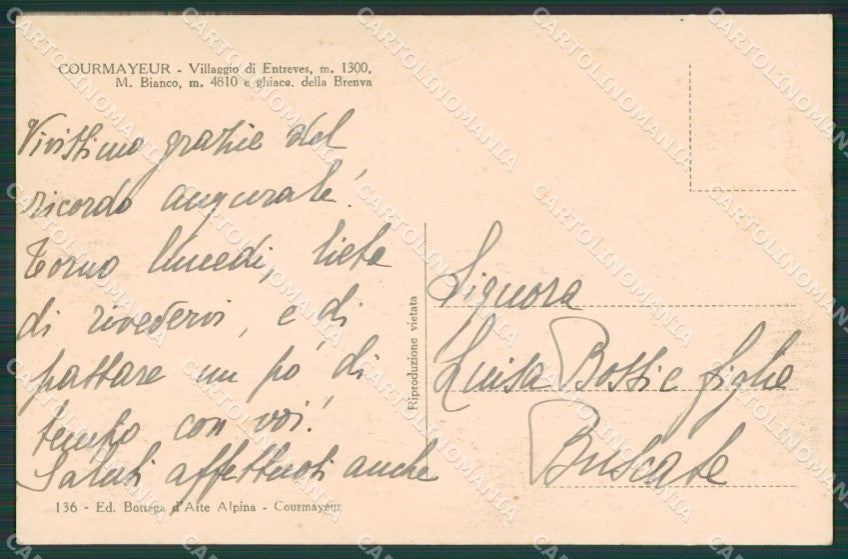 COURMAYEUR - Villaggio di Entreves, m. 1300,
M. Bianco, m. 4810 e ghiacc. della Brenva
Vivissime grazie del
ricordo augurale!
Torno lunedi, lieta
di rivedervi, e di
passare un po' di
tempo con voi!
Saluti affettuosi anche
Riproduzione vietata
Signora
Luisa Bossi e figlie
Buscate
136 - Ed. Bottega d'Arte Alpina - Courmayeur
CARTOLINOMANIA